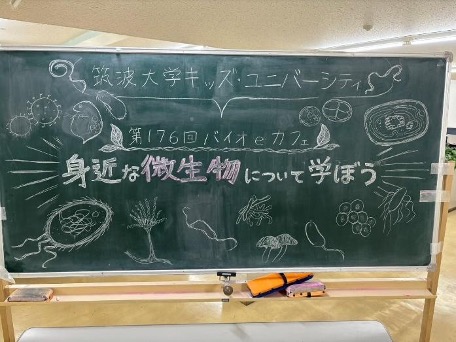 筑波大学キッズ・ユニバーシティ
第176回バイオeカフェ
身近な微生物について学ぼう